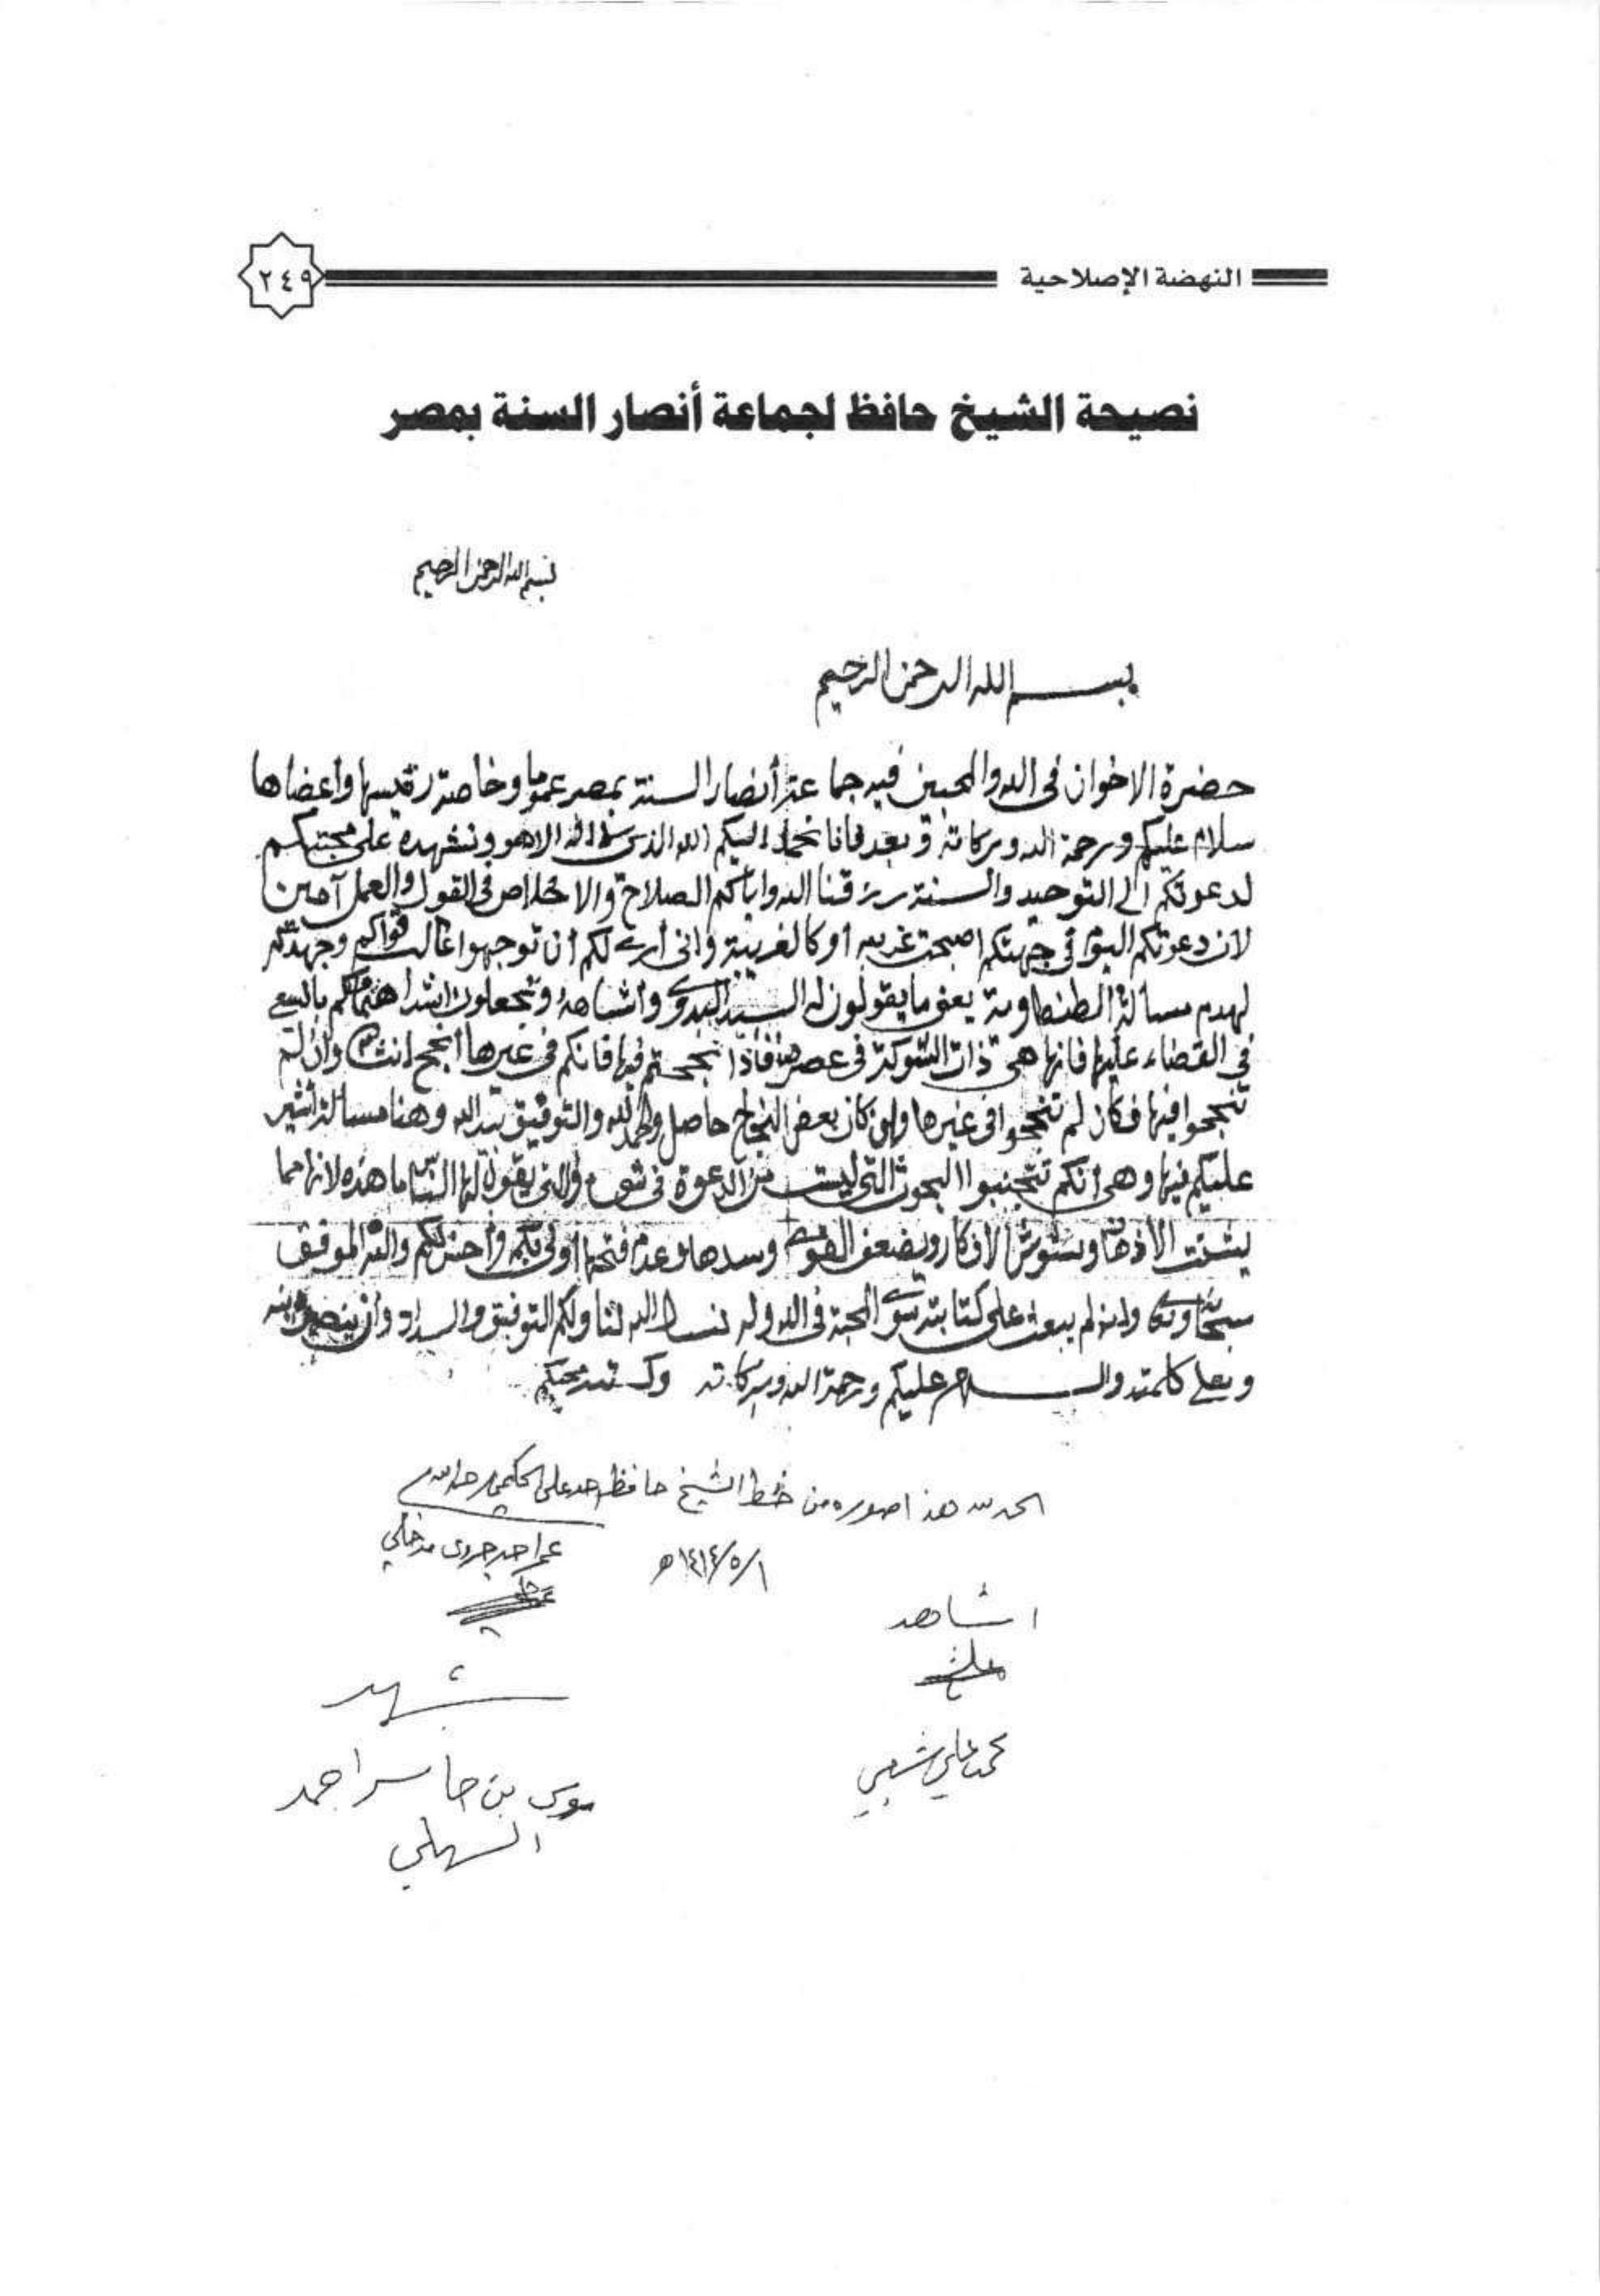 النهضة الإصلاحية
٢٤٩
نصيحة الشيخ حافظ لجماعة أنصار السنة بمصر
بسم الله الرحمن الرحيم
بسم الله الرحمن الرحيم
حضرة الاخوان في الله والمحبين فيه جماعة أنصار السنة بمصر عموما وخاصة رئيسها وأعضاها
سلام عليكم ورحمة الله وبركاته وبعد فانا نحمد اليكم الله الذي لا اله الا هو ونشهده على محبتكم
لدعوتكم الى التوحيد والسنة رزقنا الله واياكم الصلاح والاخلاص في القول والعمل آمين
لان دعوتكم اليوم في جهتكم اصبحت غريبه أو كالغريبة واني أرى لكم أن توجهوا غالب قواكم وجهدكم
لهدم مسالة الطنطاوية يعني ما يقولون له السيد البدوي وأشباهه وتجعلون اشد اهتمامكم بالسعي
في القضاء عليها فانها هي ذات الشوكة في عصرنا فاذا نجحتم فيها فانكم في غيرها أنجح انشا وان لم
تنجحوا فيها فكان لم تنجحوا في غيرها وان كان بعض النجاح حاصل ولله الحمد والتوفيق بيد الله وهنا مسالة اشير
عليكم فيها وهي أنكم تتجنبوا البحوث التي ليست من الدعوة في شيء والتي يقول لها الناس ما هذه لانها مما
يشتت الأذهان ويشوش الافكار ويضعف القوى وسدها وعدم فتحها أولى بكم وأحسن لكم والله الموفق
سبحانه وتعالى وانه لم يبعث على كتابته سوى المحبة في الله وله نسال الله لنا ولكم التوفيق والسداد وأن ينصر دينه
ويعلي كلمته والسلام عليكم ورحمة الله وبركاته وكتبه محبكم
الحمد لله هذا صوره من خط الشيخ حافظ احمد علي الحكمي رحمه الله
عمر احمد جردي مدخلي
١/٥/١٤١٤ هـ
اشاهد
شهد
محمد علي شعبي
موسى بن حاسر احمد
السهلي